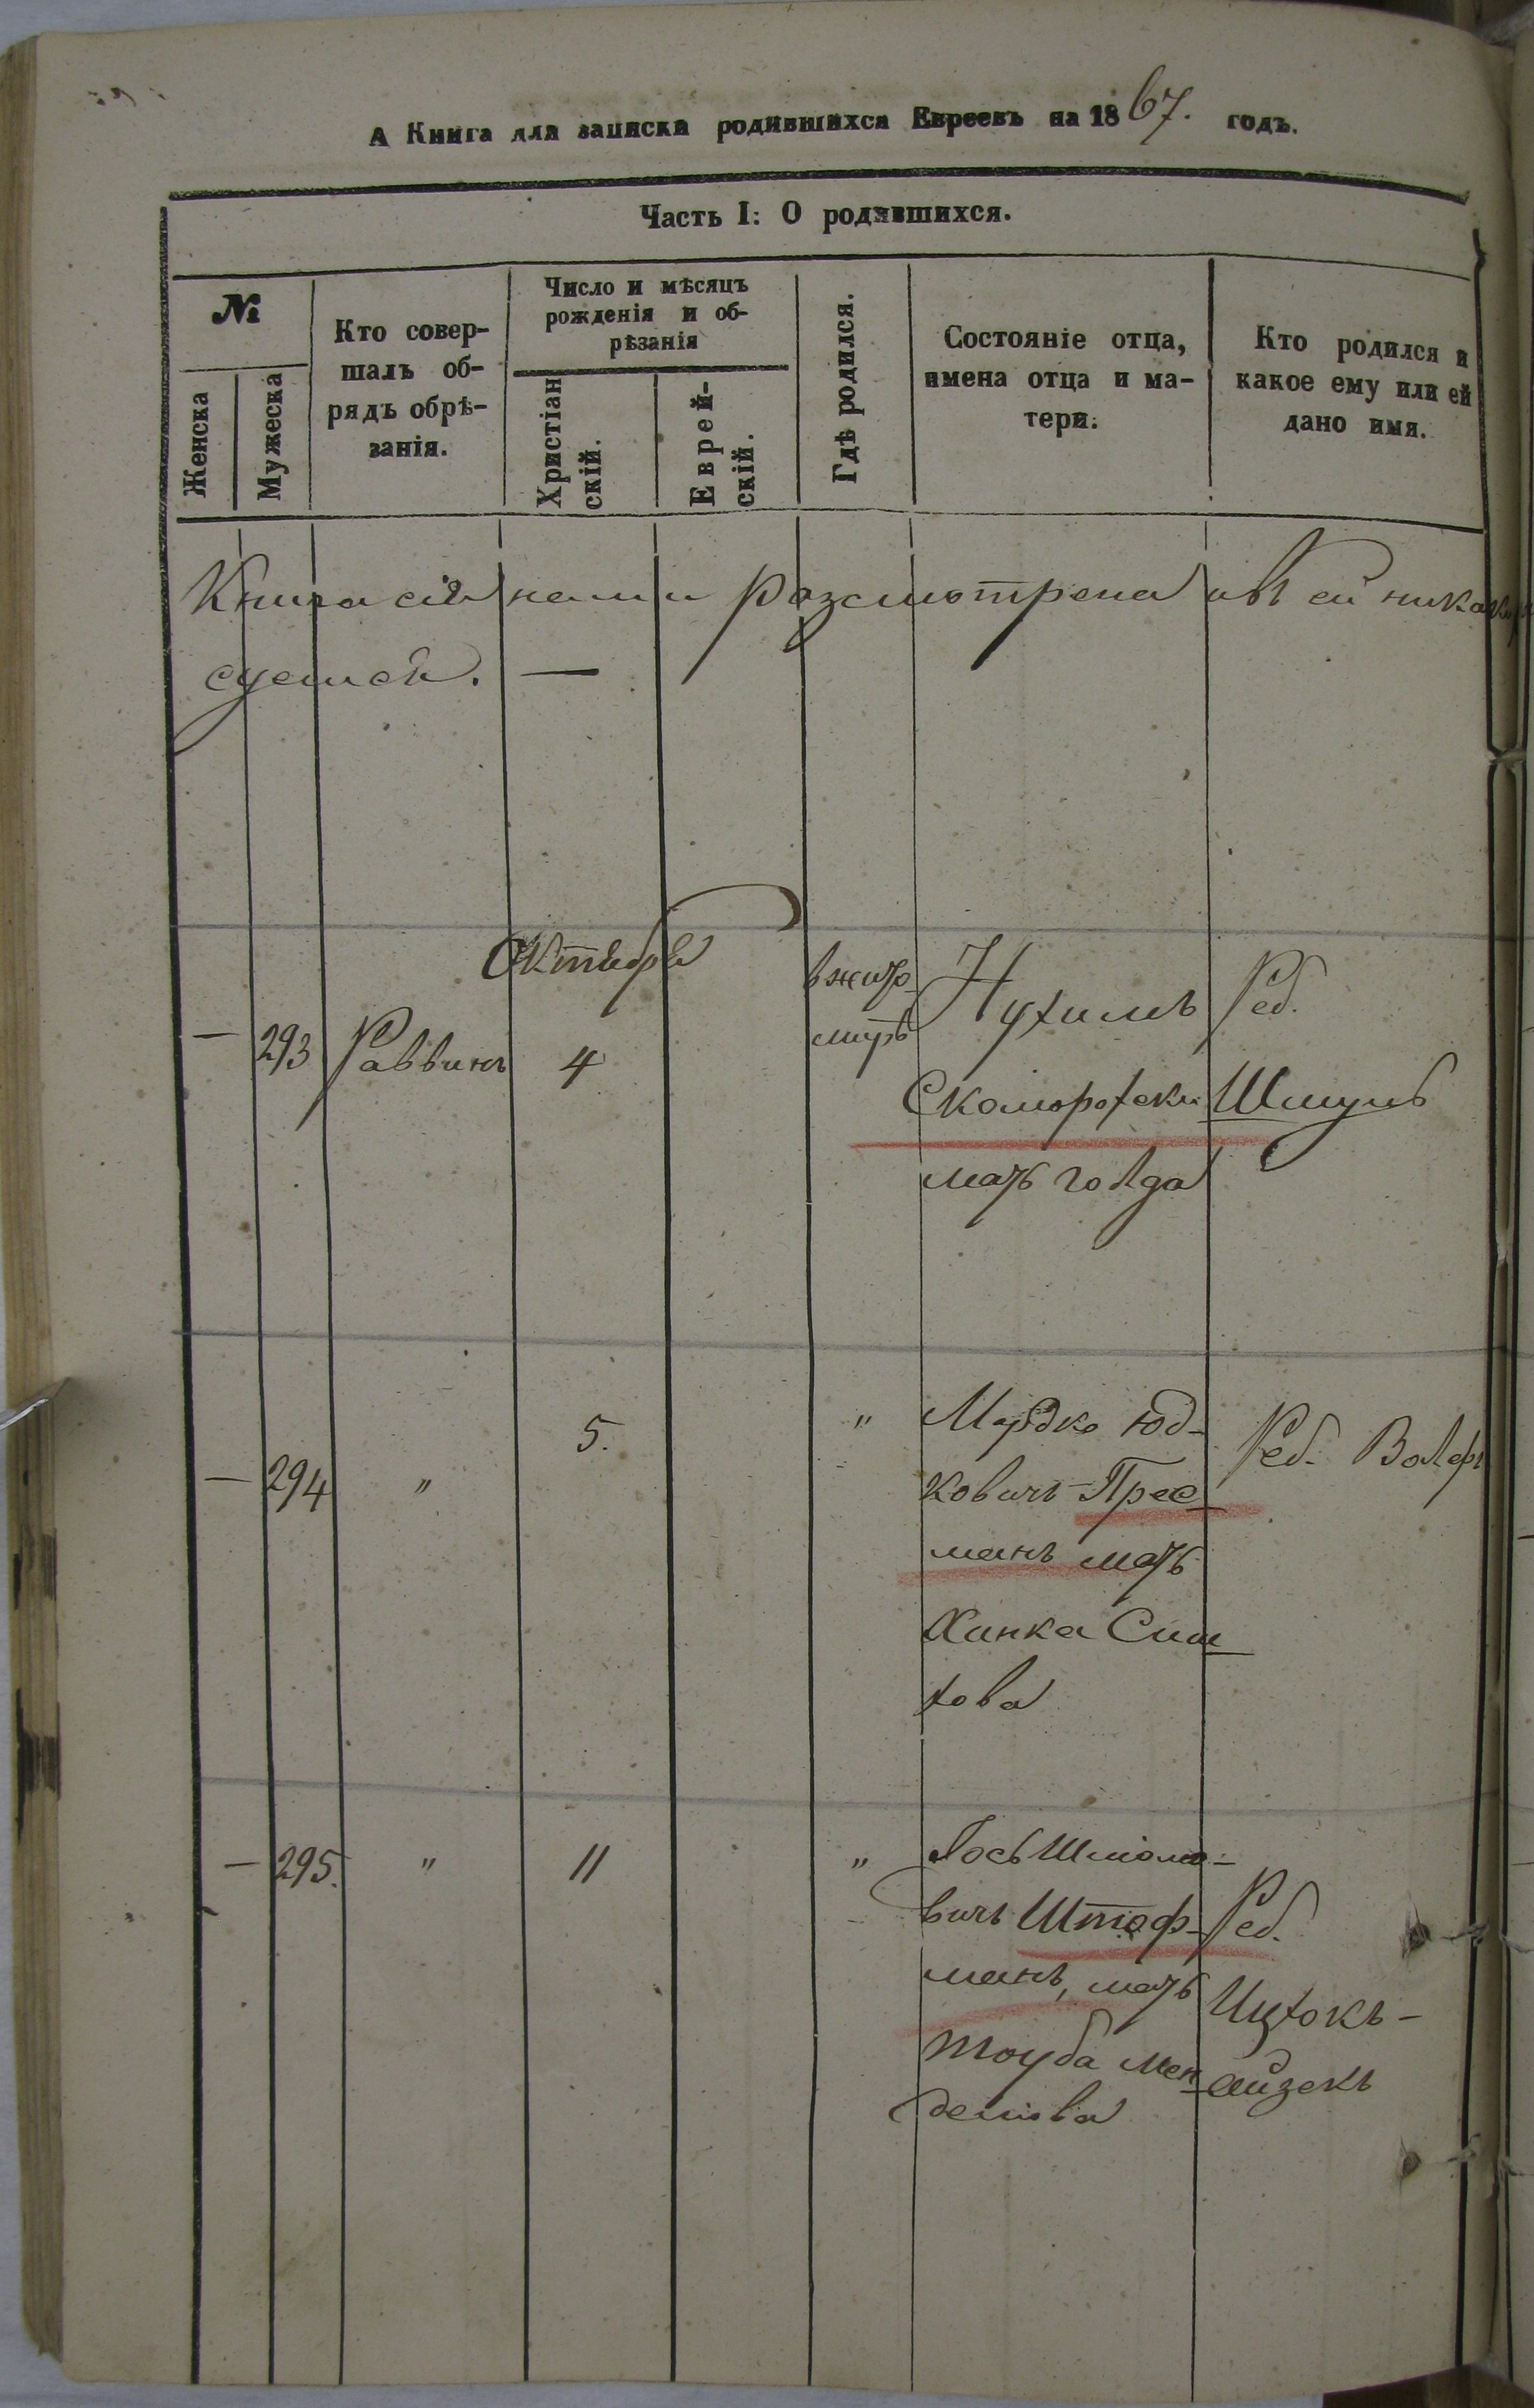 А Книга для записки родившихся Евреевъ на 1867. годъ.
Часть I: О родившихся.
№
Женска
Мужеска
Кто совер-
шалъ об-
рядъ обрѣ-
занія.
Число и мѣсяцъ
рожденія и об-
рѣзанія
Христіан
скій.
Еврей-
скій.
Гдѣ родился.
Состояніе отца,
имена отца и ма-
тери.
Кто родился и
какое ему или ей
дано имя.
Книга сія нами разсмотрена и въ ей
Октября
— 293 Раввинъ 4
в жито-
мирѣ
Нухимъ
Скоморохски
мать голда
Реб.
Шмуль
— 294 " 5. "
Мордко Юд-
ковичъ Прес
манъ мать
Ханка Сим
хова
Реб. Волфъ
— 295. " 11 "
Іось Шміоло-
вичъ Штоф-
манъ, мать
тоуба мен
делiова
Реб.
Ицхокъ-
айзекъ